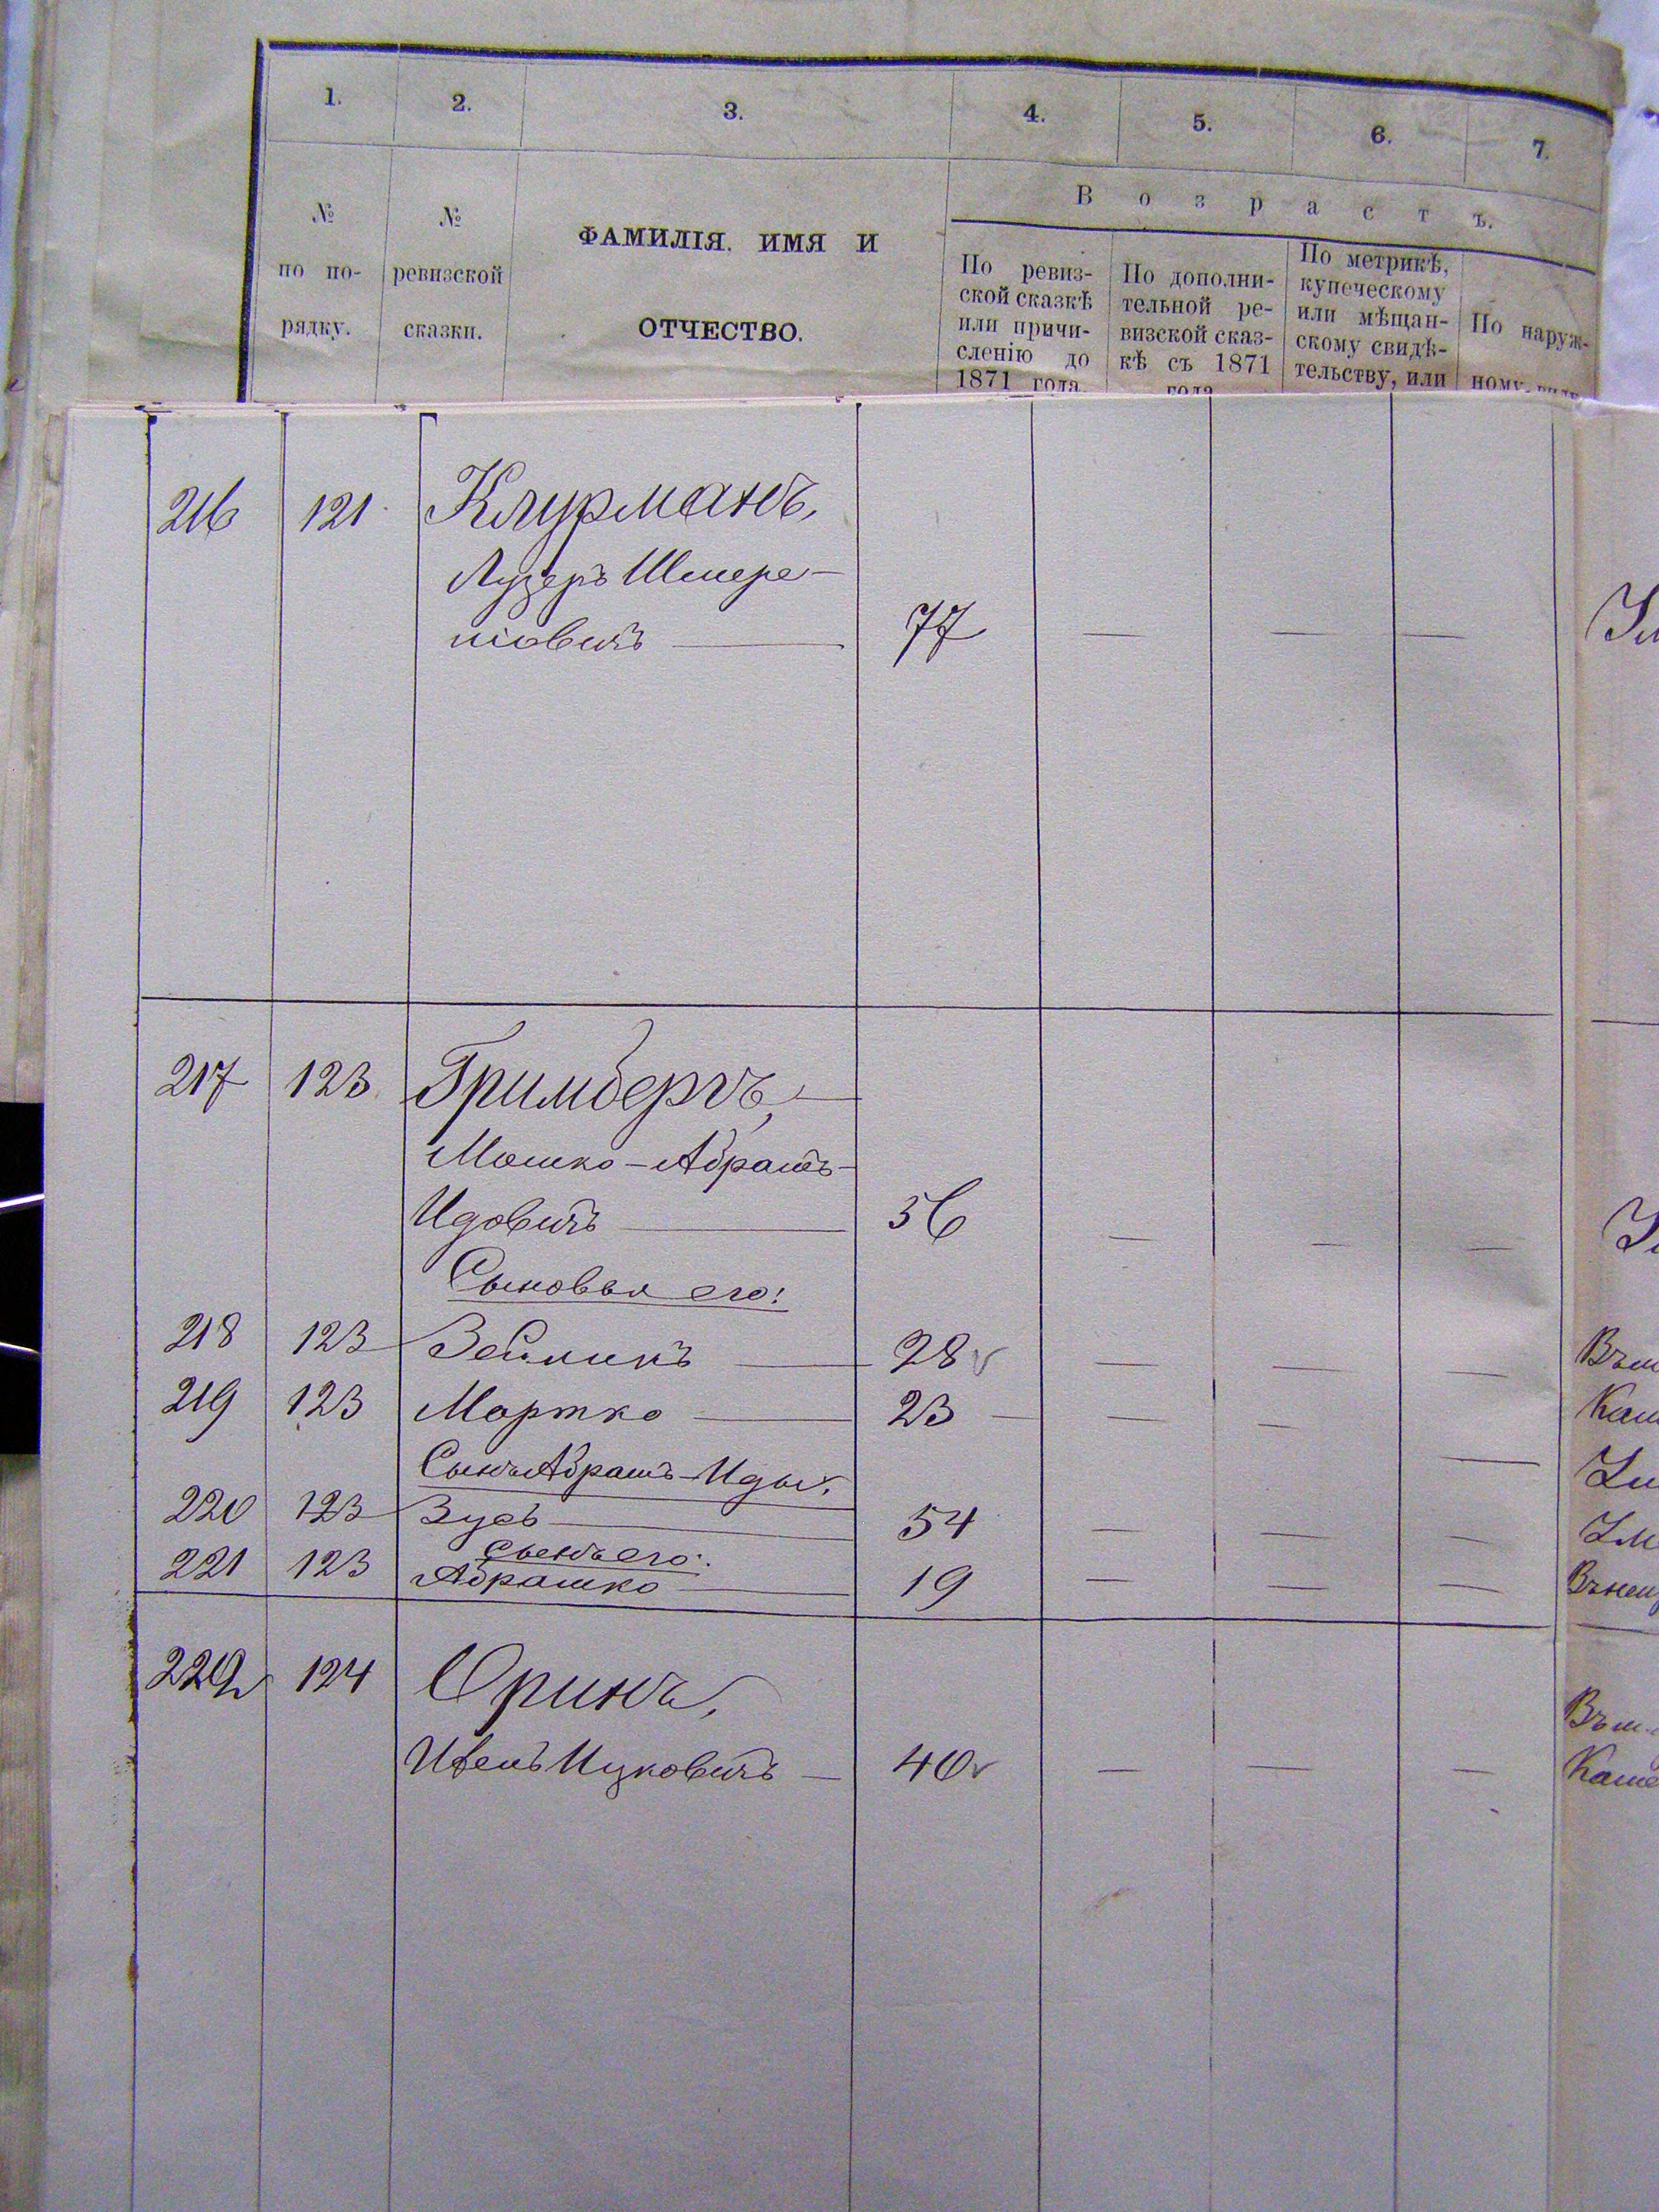 1. 2. 3. 4. 5. 6. 7.
В о з р а с т ъ.
№ по по-рядку.
№ ревизской сказки.
ФАМИЛІЯ. ИМЯ И
ОТЧЕСТВО.
По ревиз-
ской сказкѣ
или причи-
сленію до
1871 года.
По дополни-
тельной ре-
визской сказ-
кѣ съ 1871
года
По метрикѣ,
купеческому
или мѣщан-
скому свидѣ-
тельству, или
По наруж-
ному виду
216 121 Клурманъ,
Лузеръ Шмере-
ліовичъ — 77 — — —
217 123 Гримбергъ, —
Мошко-Абрамъ-
Идовичъ — 56 — — —
Сыновья его:
218 123 Зейликъ — 28 — — —
219 123 Мортко — 23 — — —
Сынъ Абрамъ-Иды,
220 123 Зусь — 54 — — —
сынъ его:
221 123 Абрашко — 19 — — —
222 124 Оринъ,
Ицковичъ — 40 — — —